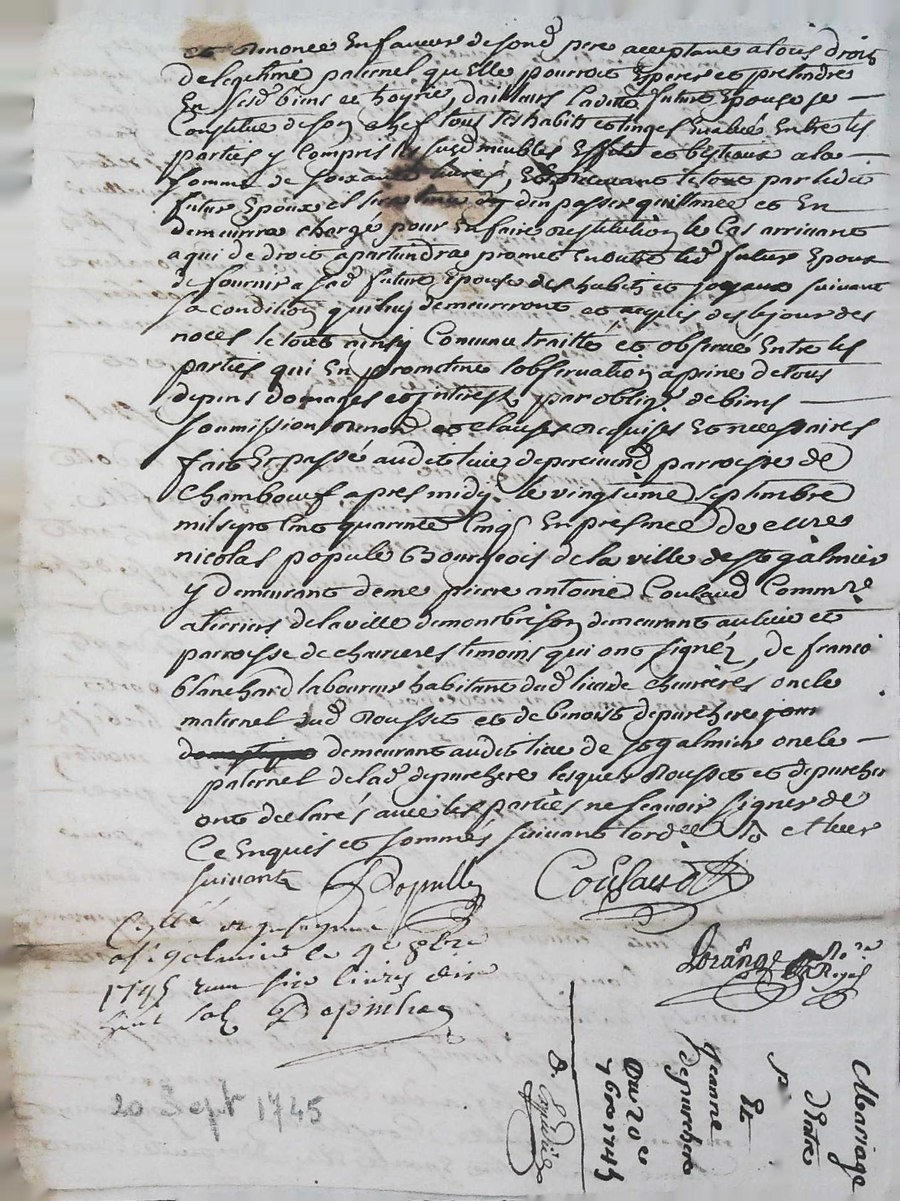 et renonce En faveur de sond pere acceptant a tous droits
de legitime paternel qu'Elle pourroit Esperer et pretendre
En sesd biens et hoyrie d'ailleurs laditte future Epouse se
Constitue de son chef tous ses habits et linges Evalué Entre les
parties y compris les susd meubles Effets et bestiaux a la
somme de soixante livres, le tout par ledit
futur Epoux passer quittance et En
demeurera chargé pour En faire restitution le Cas arrivant
a qui de droit apartiendra promet En outre led futur Epoux
de fournir a sad future Epouse des habits et joyaux suivant
sa condition qui luy demeureront et acquis des le jour des
noces le tout ainsy Convenu traitté et observé Entre les
parties qui En promettent l'observation a peine de tous
depens domages et interest par oblig de biens
soumission renon et clauses requises Et necessaires
fait Et passé audit lieu parroisse de
Chambœuf apres midy le vingtieme septembre
mil sept cent quarante Cinq En presence de
nicolas populle Bourgeois de la ville de st galmier
y demeurant de me pierre antoine Coulaud Commre
a terriers de la ville de montbrison demeurant au lieu et
parroisse de temoins qui ont signéz, de francoi
blanchard laboureur habitant dud lieu de oncle
maternel dud Rousset et de benoist depurchere
demeurant audit lieu de st galmier oncle
paternel de lad depurchere lesquels Rousset et depurcher
ont declarés avec les parties ne scavoir signer de
Ce Enquis et sommés suivant l'ord et leur
suivant Populle Coulaud
a st galmier le 4e 8bre
1745 six livres dix
sept sols Depinhac
Lorange No.re Royal
20 Sept 1745
Mariage
d'Entre
P
Et
Jeanne
depurchere
Du 20e
7bre 1745